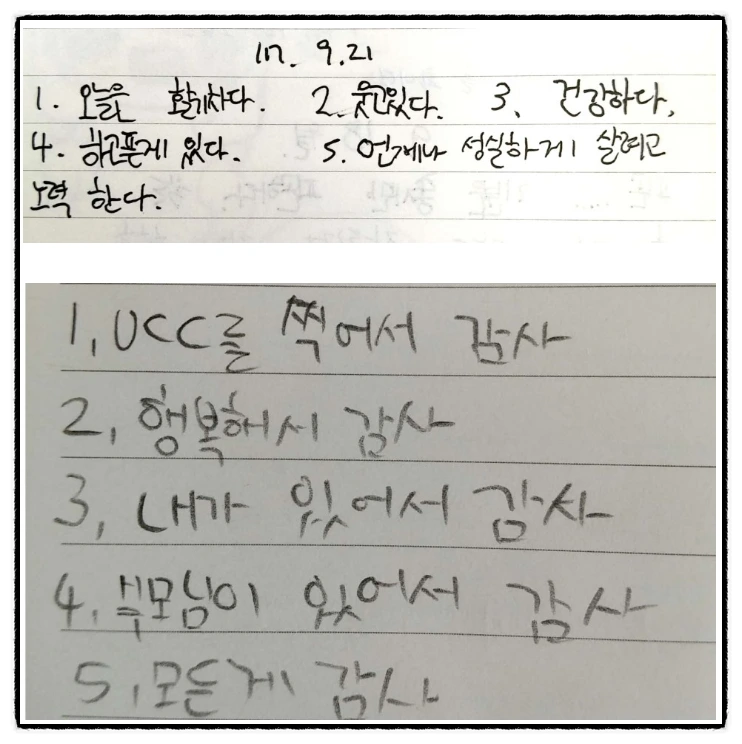 17. 9.21
1. 오늘은 활기차다. 2. 웃고있다. 3. 건강하다.
4. 하고픈게 있다. 5. 언제나 성실하게 살려고
노력 한다.
1, UCC를 찍어서 감사
2, 행복해서 감사
3, 내가 있어서 감사
4. 부모님이 있어서 감사
5, 모든게 감사